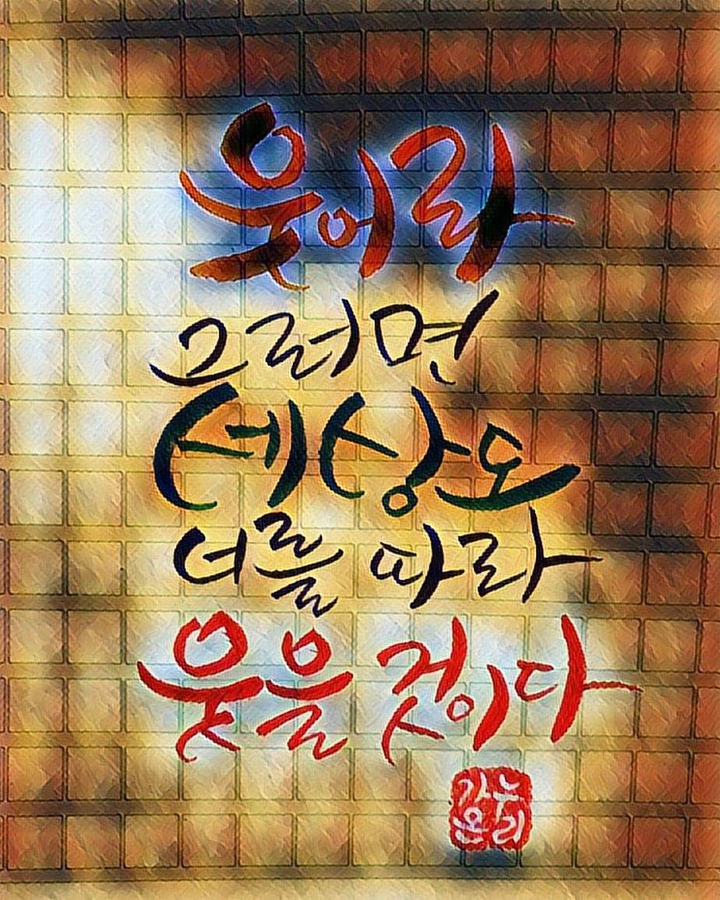 웃어라
그러면
세상도
너를 따라
웃을 것이다
가온
누리